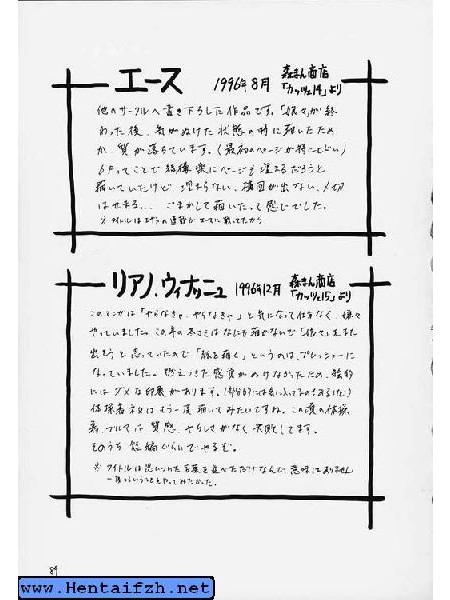 エース 1996年8月 森まん商店「カッツェ14」より
他のサークルへ書き下ろした作品です。「 」が終
わった後、気がぬけた状態の時に描いたため
か、質が落ちています。(最初のページが特にひどい)
ってことで結構楽にページも埋まるだろうと
描いていたけど埋まらない、構図が出ない、〆切
はせまる… ごまかして描いたって感じでした。
※タイトルは
リアノ.ウィナッニュ 1996年12月 森まん商店「カッツェ15」より
このころは「やらなきゃ、やらなきゃ…」と気になって仕方なく、嫌々
やっていました。この年の冬コミはなにも描かないで
出そうと思っていたので「紙を描く」というのは、プレッシャーに
なっていました。燃えつきた感覚がぬけなかったため、絵的
にはダメな印象があります。
体操着ネタはもう一度描いてみたいですね。この頃の体操
着、ブルマは質感、やらしさがなく失敗してます。
そのうち短編ぐらいでやるぞ。
※タイトルは思いついた言葉を並べただけなんで意味はありません
一度こういうことをやってみたかった。
89
www.Hentaifzh.net
www.hentaifzh.net